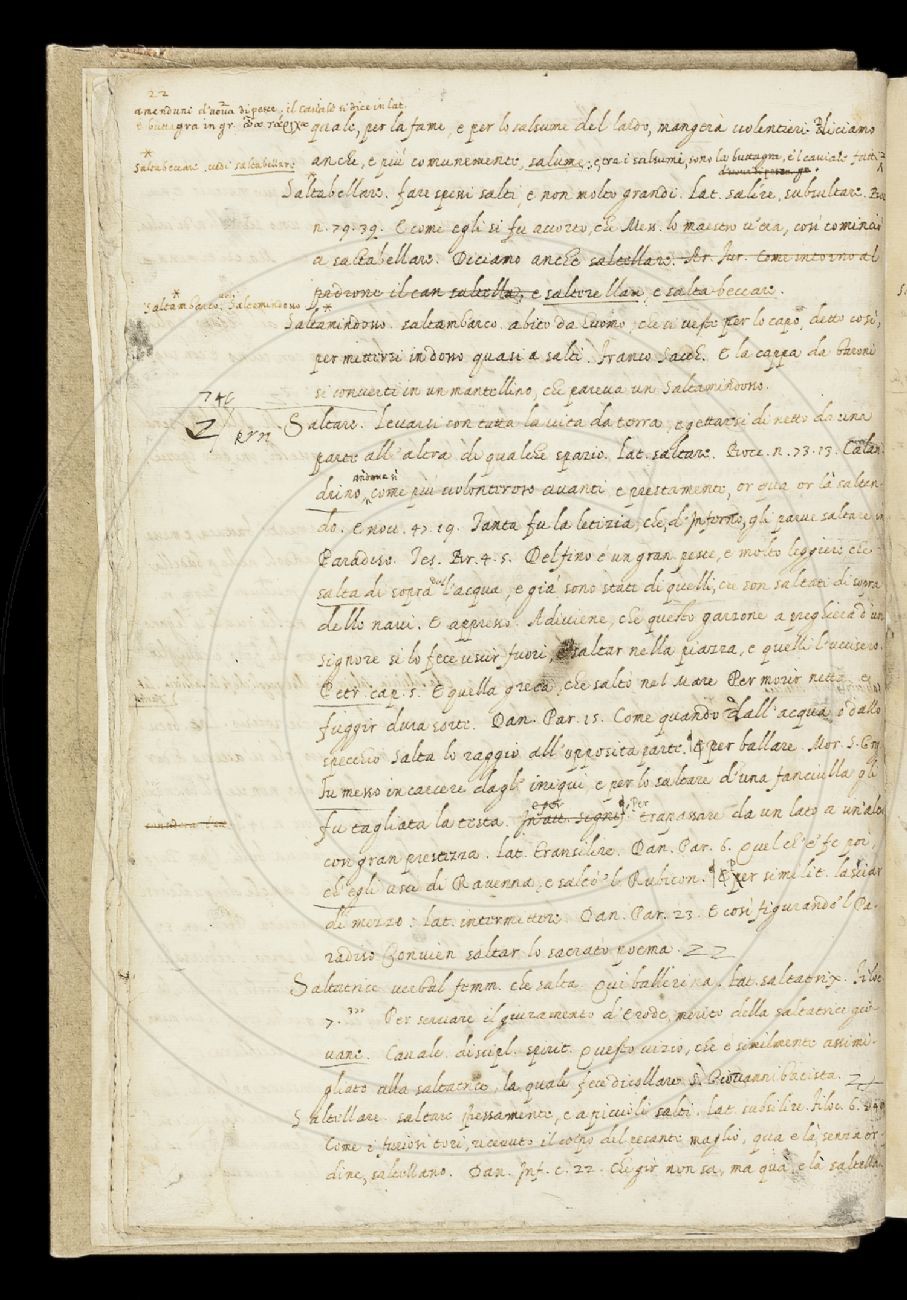 22
amenduni d'uova di pesce. il caviale si dice in lat.
e buttagra in gr. ὠὰ τάριχα
quale, per la fame, e per lo salsume del lardo, mangerà volentieri. Diciamo
anche, e più comunemente, salume, e tra i salumi, sono la buttagra, e 'l caviale fatti
Saltabeccare. vedi saltabellare
Saltabellare. fare spessi salti e non molto grandi. Lat. salire, subsultare. Bocc.
n. 79. 39. E come egli si fu accorto, che Mess. lo maestro v'era, così cominciò
a saltabellare. Diciamo anche saltellare. Ar. fur. Come intorno al
padrone il can saltella, e saltorellare, e salta beccare.
Saltambarco, vedi Saltamindosso
Saltamindosso. saltambarco. abito da huomo, che si veste per lo capo, detto così,
per mettersi indosso quasi a salti. Franco Sacch. E la cappa da Baroni
si convertì in un mantellino, che pareva un Saltamindosso.
Saltare. Levarsi con tutta la vita da terra, e gettarsi di netto da una
parte all'altra di qualche spazio. Lat. saltare. Bocc. n. 73. 13. Calan
drino, andava si come più volonteroso avanti, e prestamente, or qua or là saltan-
do. E nov. 47. 19. Tanta fu la letizia, che d'Inferno, gli parve saltare in
Paradiso. Tes. Br. 4. 5. Delfino è un gran pesce, e molto leggiero che
salta di sopra dell'acqua, e già sono stati di quelli, che son saltati di sopra
dello navi. E appresso. Adiviene, che questo garzone a preghiera d'un
signore si lo fece uscir fuori, e saltar nella piazza, e quelli l'uccisero.
Petr. cap. 5. E quella greca, che saltò nel Mare Per morir netta, e
fuggir dura sorte. Dan. Par. 15. Come quando dall'acqua, o dallo
specchio Salta lo raggio all'opposita parte. § E per ballare. Mor. S. Greg.
Fu messo in carcere dagl'iniqui, e per lo saltare d'una fanciulla gli
fu tagliata la testa. § e per trapassare da un lato a un'altro
con gran prestezza. Lat. transilire. Dan. Par. 6. Quel ch'e' fe poi,
ch'egli uscì di Ravenna, e saltò 'l Rubicon. § E per similit. lasciar
di mezzo. lat. intermittere. Dan. Par. 23. E così figurando 'l Pa-
radiso Convien saltar lo sacrato poema.
Saltatrice verbal femm. che salta. Qui ballerina. Lat. saltatrix. Filoc.
7. Per servare il giuramento d'Erode, merito della saltatrice gio-
vane. Cavalc. discipl. spirit. Questo vizio, che è similmente assimi-
gliato alla saltatrice, la quale fece dicollare S. Giovanni batista.
Saltellare. saltare spessamente, e a piccioli salti. Lat. subsilire. Filoc. 6.
Come i furiosi tori, ricevuto il colpo del pesante maglio, qua e là, senza or
dine, saltellano. Dan. Inf. c. 22. Che gir non sa, ma qua, e là saltella